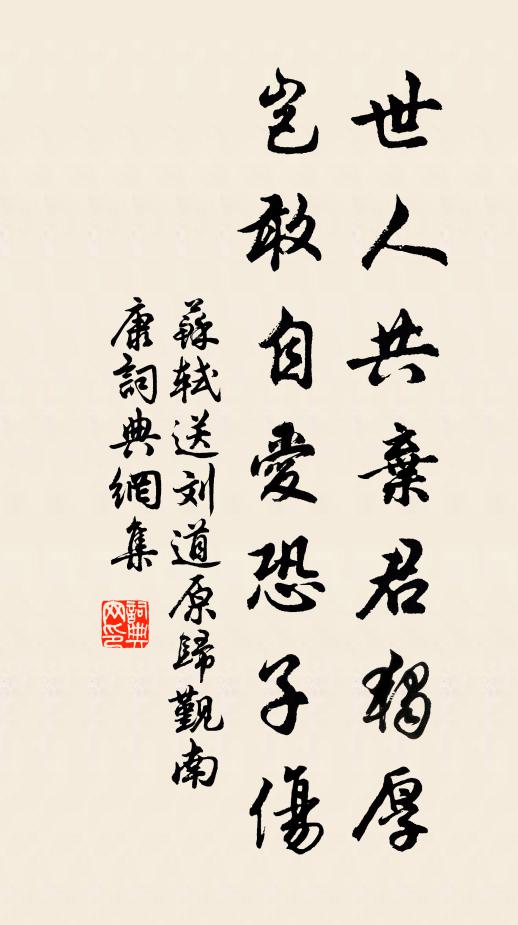 世人共棄君獨厚
豈敢自愛恐子傷
蘇軾送刘道原歸覲南
康詞典網集
詞典网印